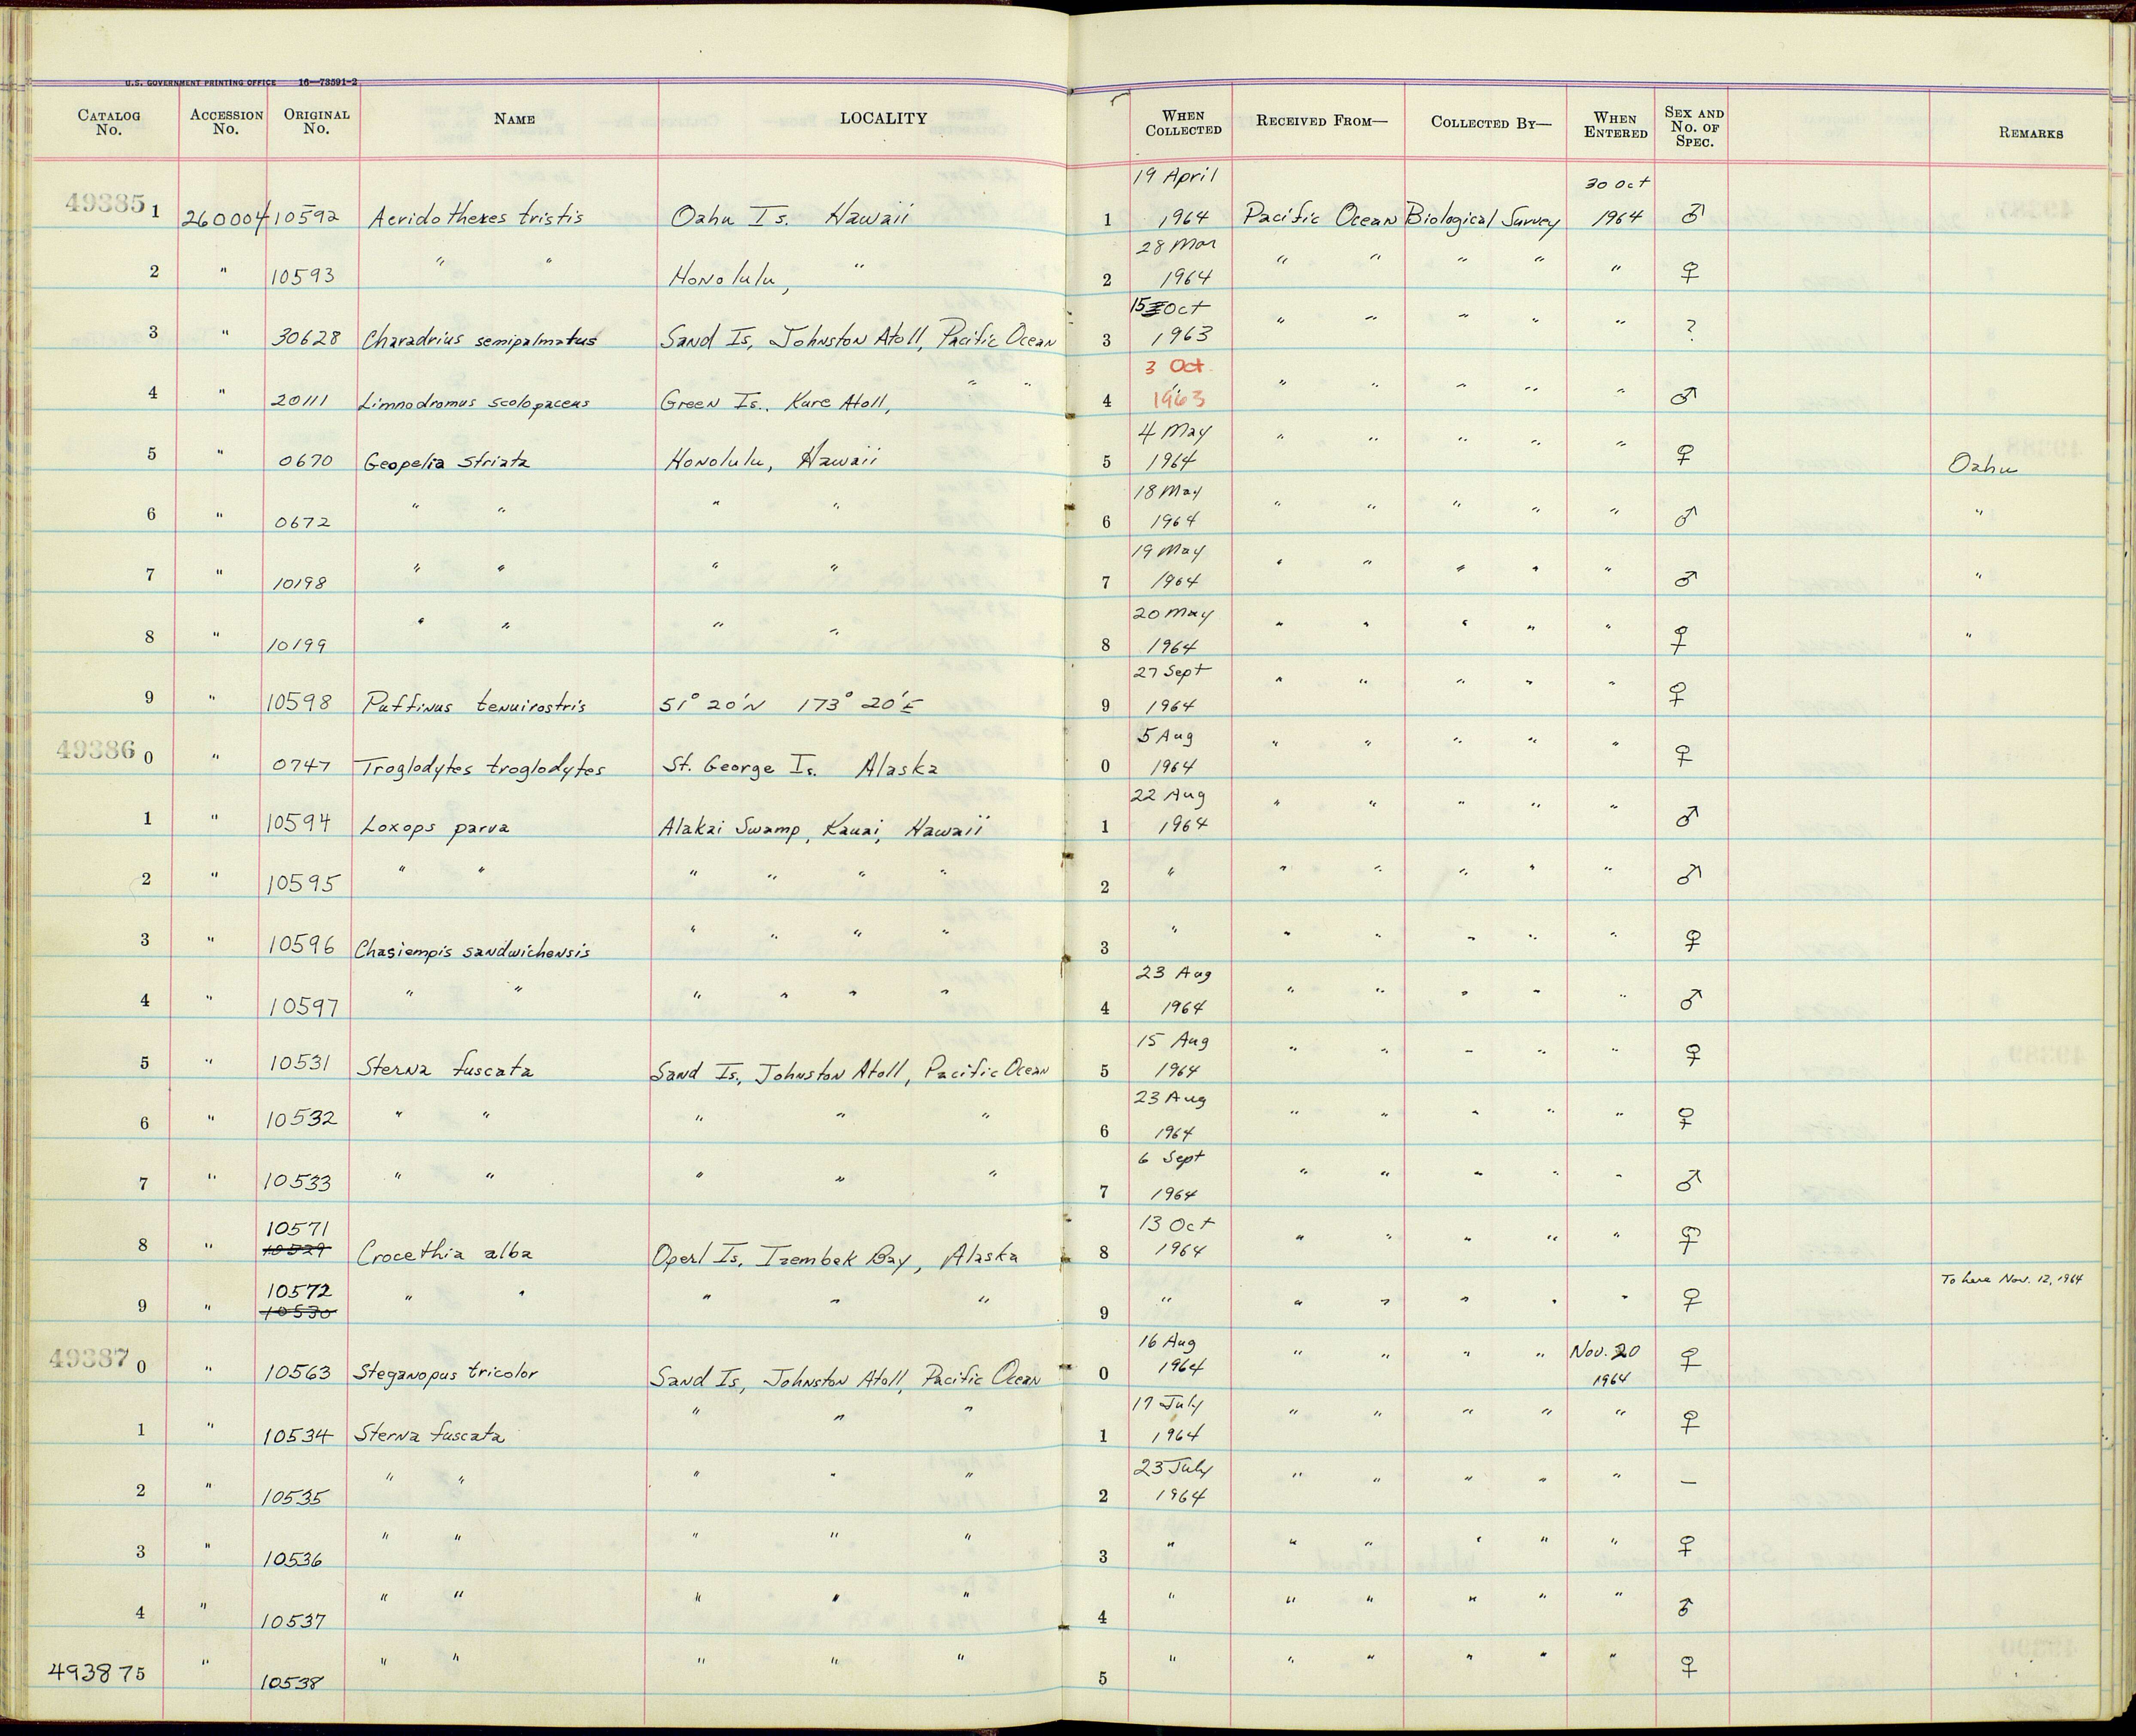 U.S. GOVERNMENT PRINTING OFFICE 16—73591-2
CATALOG No. ACCESSION No. ORIGINAL No. NAME LOCALITY WHEN COLLECTED RECEIVED FROM— COLLECTED BY— WHEN ENTERED SEX AND No. OF SPEC. REMARKS
19 April 30 Oct
49385 1 260004 10592 Acridotheres tristis Oahu Is. Hawaii 1 1964 Pacific Ocean Biological Survey 1964 ♂
28 Mar
2 " 10593 " " Honolulu, " 2 1964 " " " " " ♀
15 Oct
3 " 30628 Charadrius semipalmatus Sand Is, Johnston Atoll, Pacific Ocean 3 1963 " " " " " ?
3 Oct
4 " 20111 Limnodromus scolopaceus Green Is., Kure Atoll, " " 4 1963 " " " " " ♂
4 May
5 " 0670 Geopelia striata Honolulu, Hawaii 5 1964 " " " " " ♀ Oahu
18 May
6 " 0672 " " " " 6 1964 " " " " " ♂ "
19 May
7 " 10198 " " " " 7 1964 " " " " " ♂ "
20 May
8 " 10199 " " " " 8 1964 " " " " " ♀ "
27 Sept
9 " 10598 Puffinus tenuirostris 51° 20'N 173° 20'E 9 1964 " " " " " ♀
5 Aug
49386 0 " 0747 Troglodytes troglodytes St. George Is. Alaska 0 1964 " " " " " ♀
22 Aug
1 " 10594 Loxops parva Alakai Swamp, Kauai, Hawaii 1 1964 " " " " " ♂
2 " 10595 " " " " " " 2 " " " " " " ♂
3 " 10596 Chasiempis sandwichensis " " " " 3 " " " " " " ♀
23 Aug
4 " 10597 " " " " " " 4 1964 " " " " " ♂
15 Aug
5 " 10531 Sterna fuscata Sand Is., Johnston Atoll, Pacific Ocean 5 1964 " " " " " ♀
23 Aug
6 " 10532 " " " " " 6 1964 " " " " " ♀
6 Sept
7 " 10533 " " " " " 7 1964 " " " " " ♂
10571 13 Oct
8 " 10529 Crocethia alba Operl Is, Izembek Bay, Alaska 8 1964 " " " " " ♀
10572 To here Nov. 12, 1964
9 " 10530 " " " " " 9 " " " " " " ♀
16 Aug Nov. 20
49387 0 " 10563 Steganopus tricolor Sand Is, Johnston Atoll, Pacific Ocean 0 1964 " " " " 1964 ♀
17 July
1 " 10534 Sterna fuscata " " " 1 1964 " " " " " ♀
23 July
2 " 10535 " " " " " 2 1964 " " " " " —
3 " 10536 " " " " " 3 " " " " " " ♀
4 " 10537 " " " " " 4 " " " " " " ♂
493875 " 10538 " " " " " 5 " " " " " " ♀